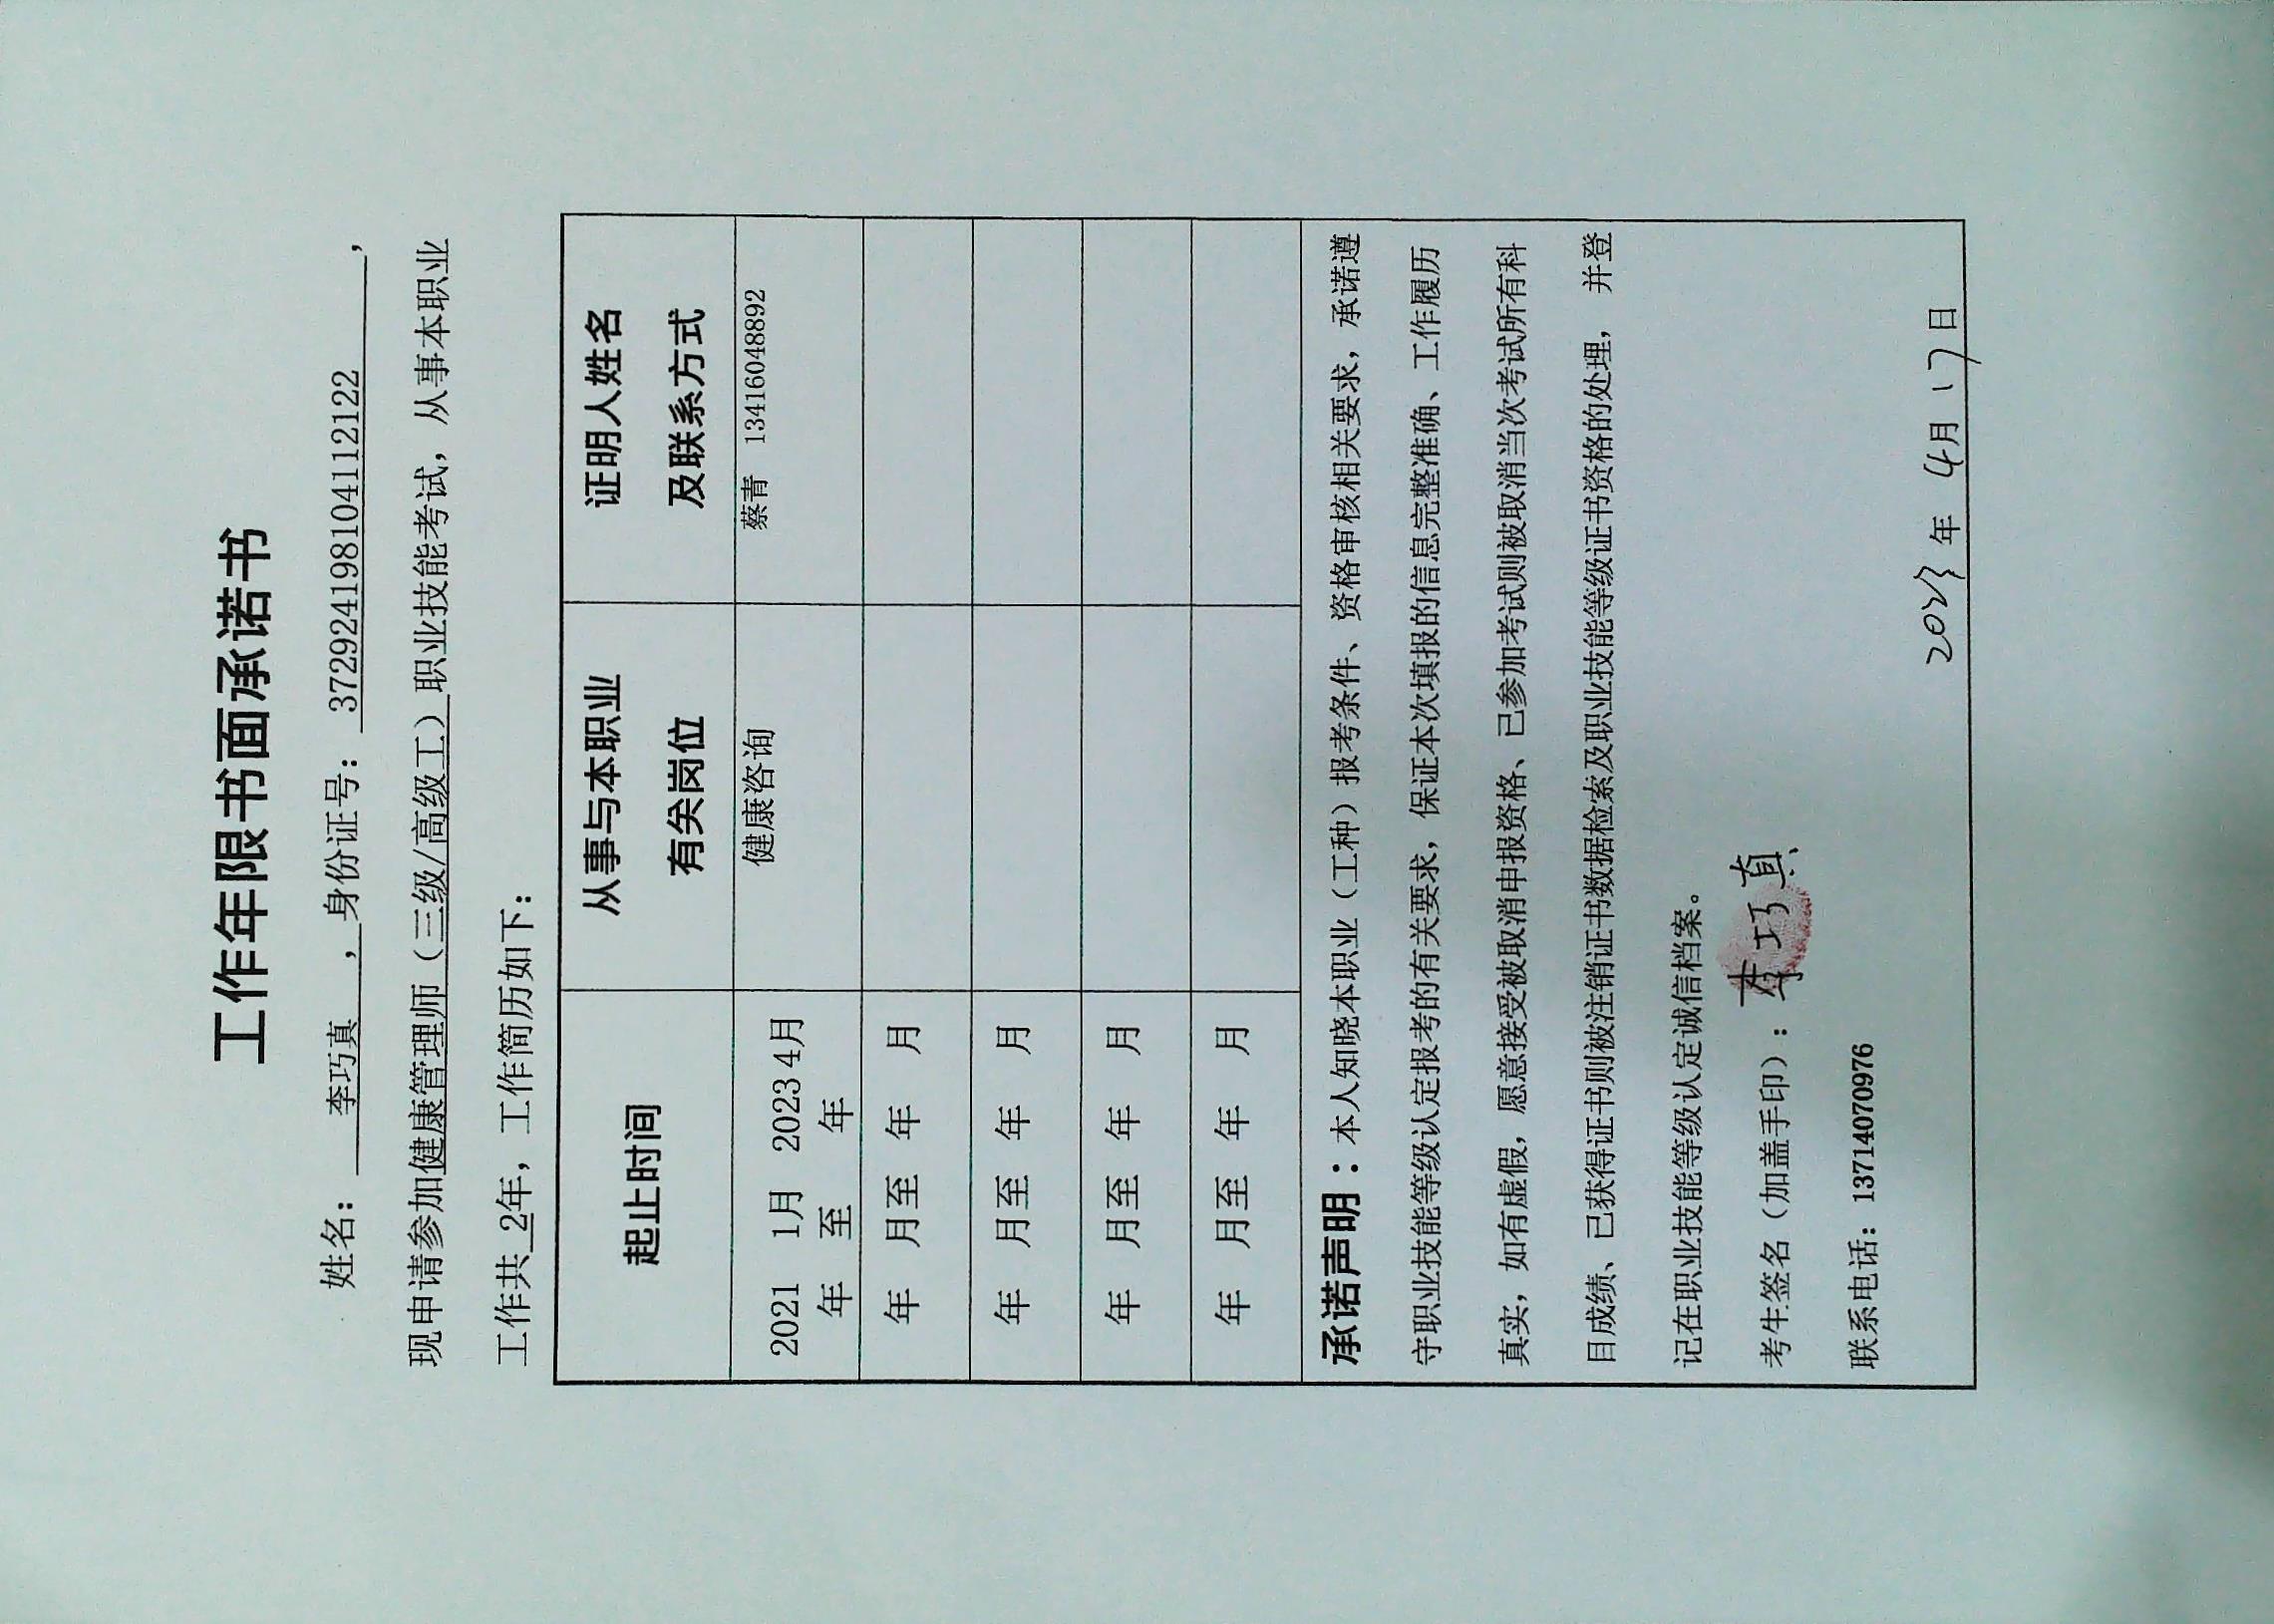 工作年限书面承诺书
姓名： 李巧真 ，身份证号： 372924198104112122 ，
现申请参加健康管理师（三级/高级工）职业技能考试，从事本职业
工作共 2年，工作简历如下：
起止时间 从事与本职业有关岗位 证明人姓名及联系方式
2021年 1月至 2023年 4月 健康咨询 蔡青 13416048892
年 月至 年 月
年 月至 年 月
年 月至 年 月
年 月至 年 月
承诺声明：本人知晓本职业（工种）报考条件、资格审核相关要求，承诺遵
守职业技能等级认定报考的有关要求，保证本次填报的信息完整准确、工作履历
真实，如有虚假，愿意接受被取消申报资格、已参加考试则被取消当次考试所有科
目成绩、已获得证书则被注销证书数据检索及职业技能等级证书资格的处理，并登
记在职业技能等级认定诚信档案。
考生签名（加盖手印）：李巧真
联系电话：13714070976
2023年 4月 17日